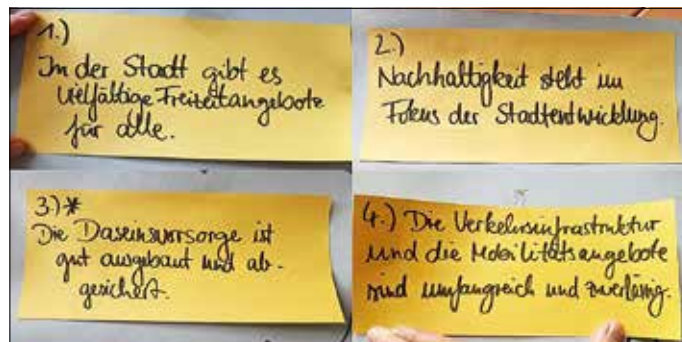 1.)
In der Stadt gibt es
vielfältige Freizeitangebote
für alle.
2.)
Nachhaltigkeit steht im
Fokus der Stadtentwicklung.
3.)*
Die Daseinsvorsorge ist
gut ausgebaut und ab-
gesichert.
4.) Die Verkehrsinfrastruktur
und die Mobilitätsangebote
sind umfangreich und zuverlässig.